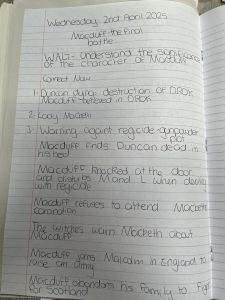 Wednesday 2nd April 2025
Macduff the final
battle
WALT- Understand the significance
of the character of Macduff
Correct Now
1. Duncan dying destruction of DROK
Macduff believed in DROK
2. Lady Macbeth
3. Warning against regicide gunpowder
plot
Macduff finds Duncan dead in
his bed
Macduff knocked at the door
and disturbs M and L when
with regicide
Macduff refuses to attend Macbeths
coronation
The witches warn Macbeth about
Macduff
Macduff joins Malcolm in England to
raise an army
Macduff abandons his family to fight
for Scotland